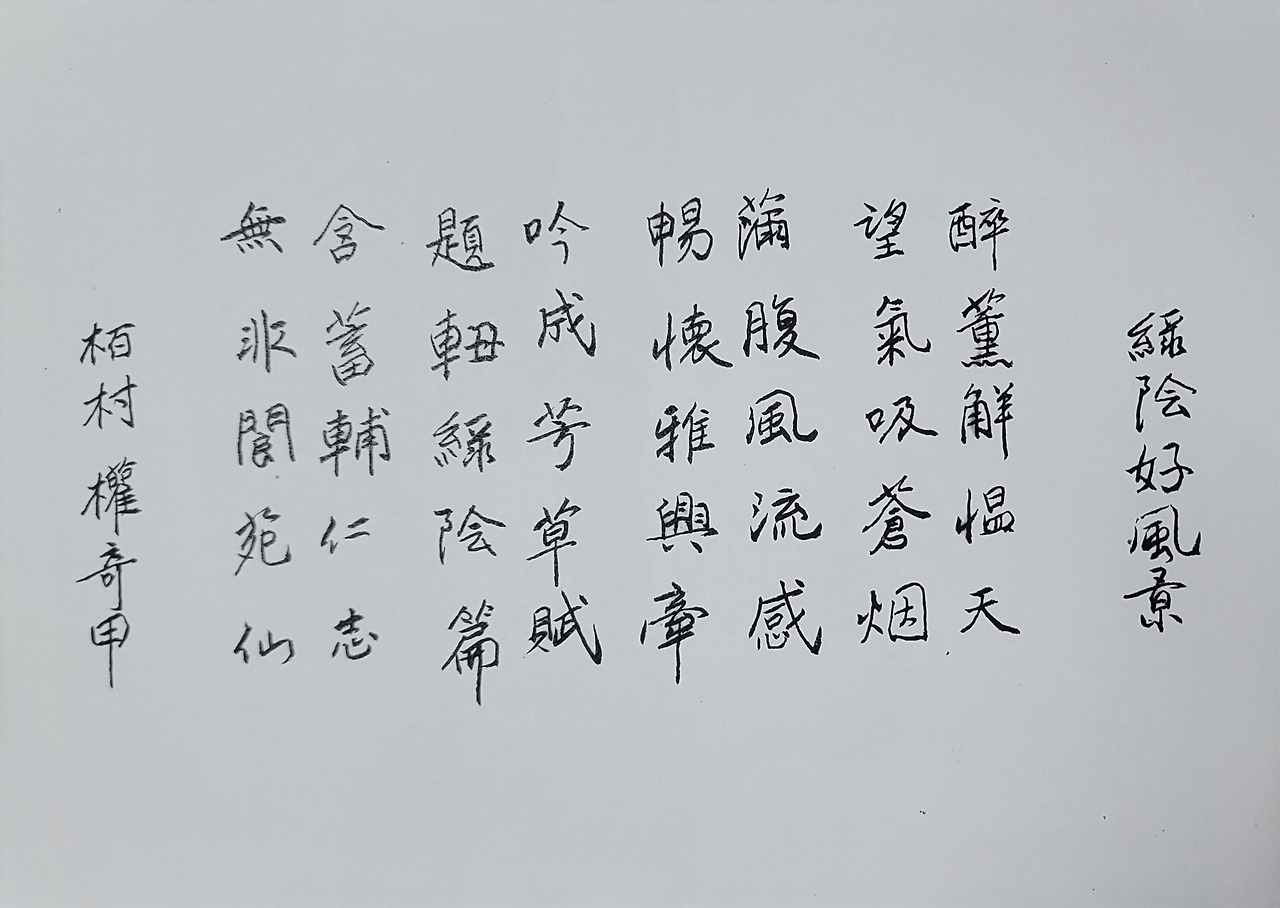 綠陰好風景
醉薰解慍天
望氣吸蒼烟
滿腹風流感
暢懷雅興牽
吟成芳草賦
題綠陰篇
含蓄輔仁志
無非閬苑仙
栢村 權奇甲